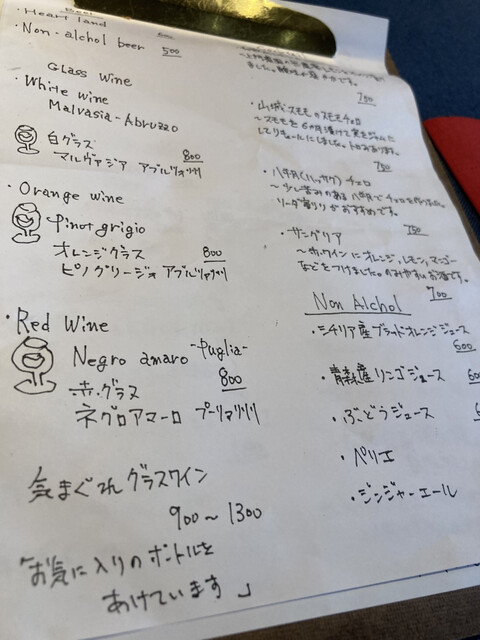 Beer
・Heart land
・Non-alchol beer 500
Glass Wine
・White wine
Malvasia-Abruzzo
白グラス 800
マルヴァジア アブルッツォ州
・Orange wine
Pinot grigio
オレンジグラス 800
ピノグリージオ アブルッツォ州
・Red Wine
Negro amaro -Puglia-
赤グラス 800
ネグロアマーロ プーリア州
気まぐれグラスワイン
900〜1300
「お気に入りのボトルを
あけています」
700
・山城スモモのスモモチェロ
750
・八朔(ハッサク)チェロ
ソーダ割りがおすすめです。
・サングリア 750
〜赤ワインにオレンジ、レモン、マンゴー
などをつけました。のみやすいお酒です。
700
Non Alchol
・シチリア産ブラッドオレンジジュース
600
・青森産リンゴジュース
・ぶどうジュース
・ペリエ
・ジンジャーエール